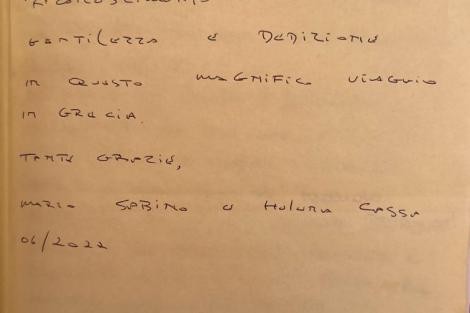 GENTILEZZA E DEDIZIONE
IN QUESTO MAGNIFICO VIAGGIO
IN GRECIA.
TANTE GRAZIE,
MARIO SABINO E CASSA
06/2022